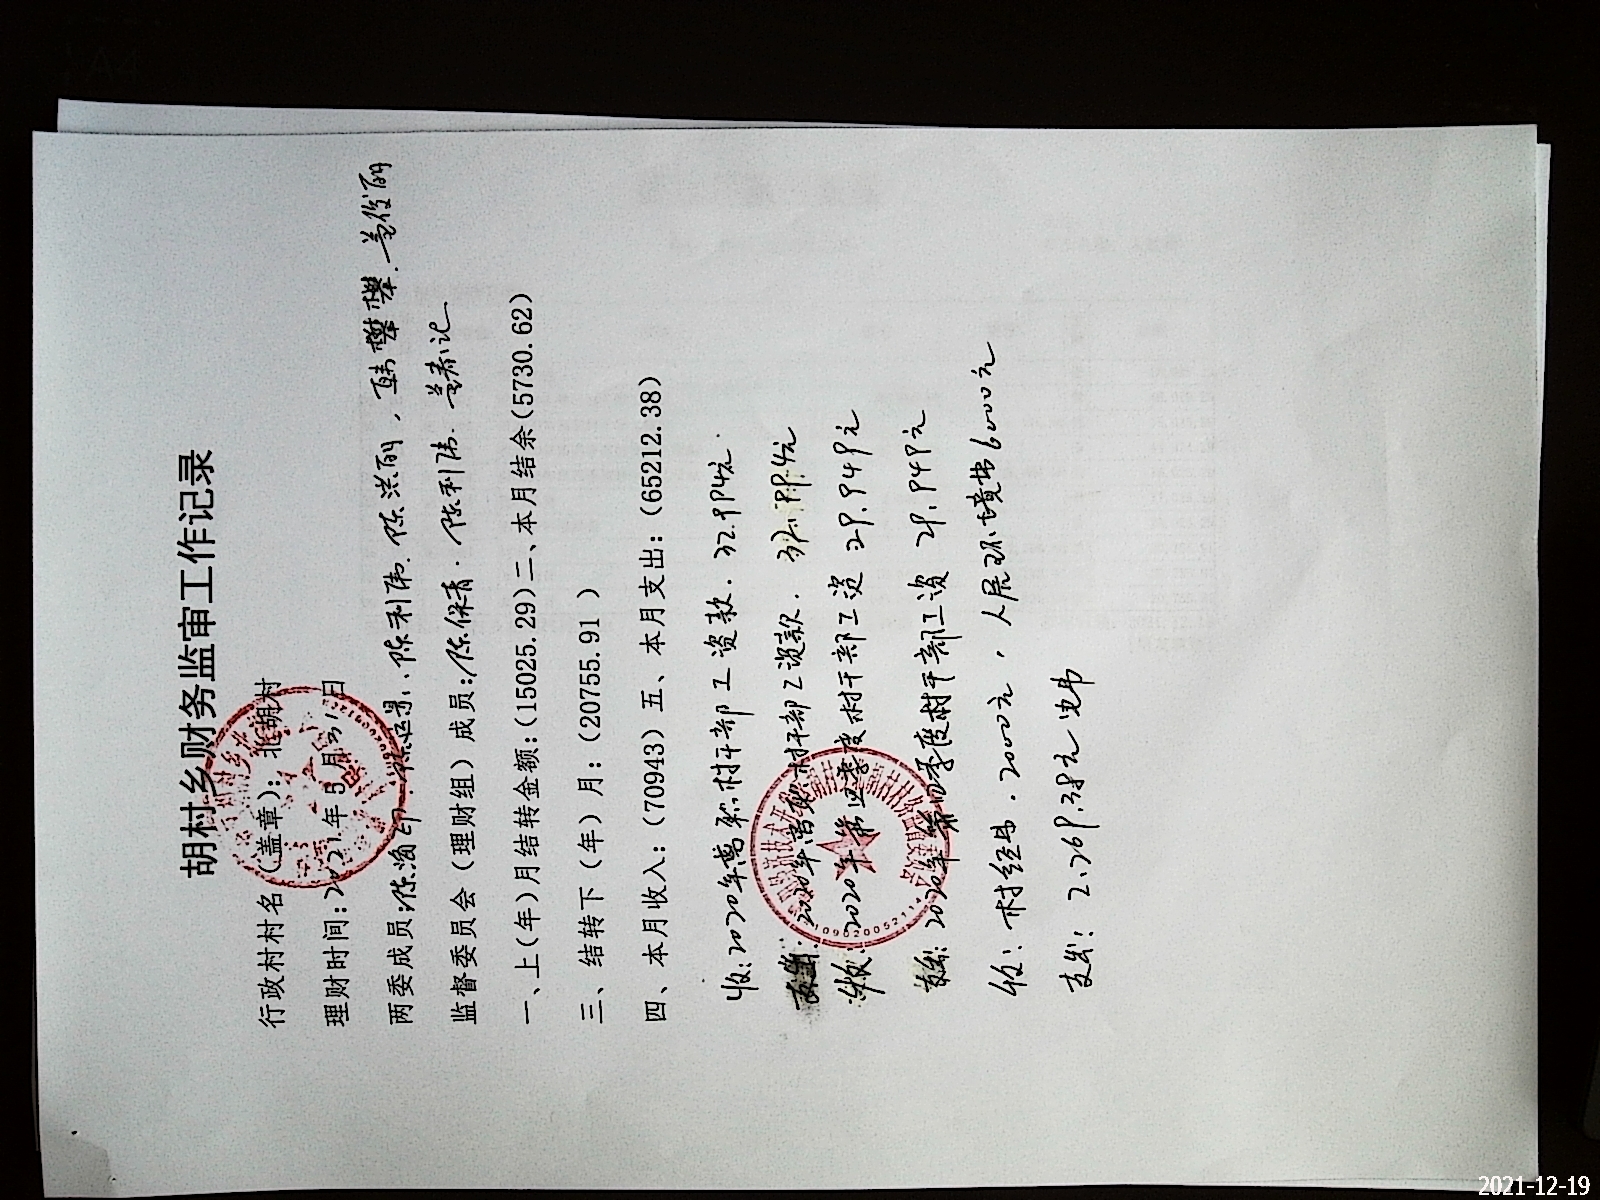 胡村乡财务监审工作记录
行政村村名（盖章）：北胡村
理财时间：2021年5月31日
两委成员：陈海印 陈利伟 陈洪丽，韩攀攀
监督委员会（理财组）成员：陈保青 陈利伟
一、上（年）月结转金额：（15025.29）二、本月结余（5730.62）
三、结转下（年）月：（20755.91 ）
四、本月收入：（70943）五、本月支出：（65212.38）
收：2020年离职村干部工资款．32.994元．
支出：2020年离职村干部工资款．32.994元
收：2020年第四季度村干部工资 29.949元
支出：2020年第四季度村干部工资 29.949元
收：村经费．2000元，人居环境费6000元
支出：2.269.38元 电费
2021-12-19